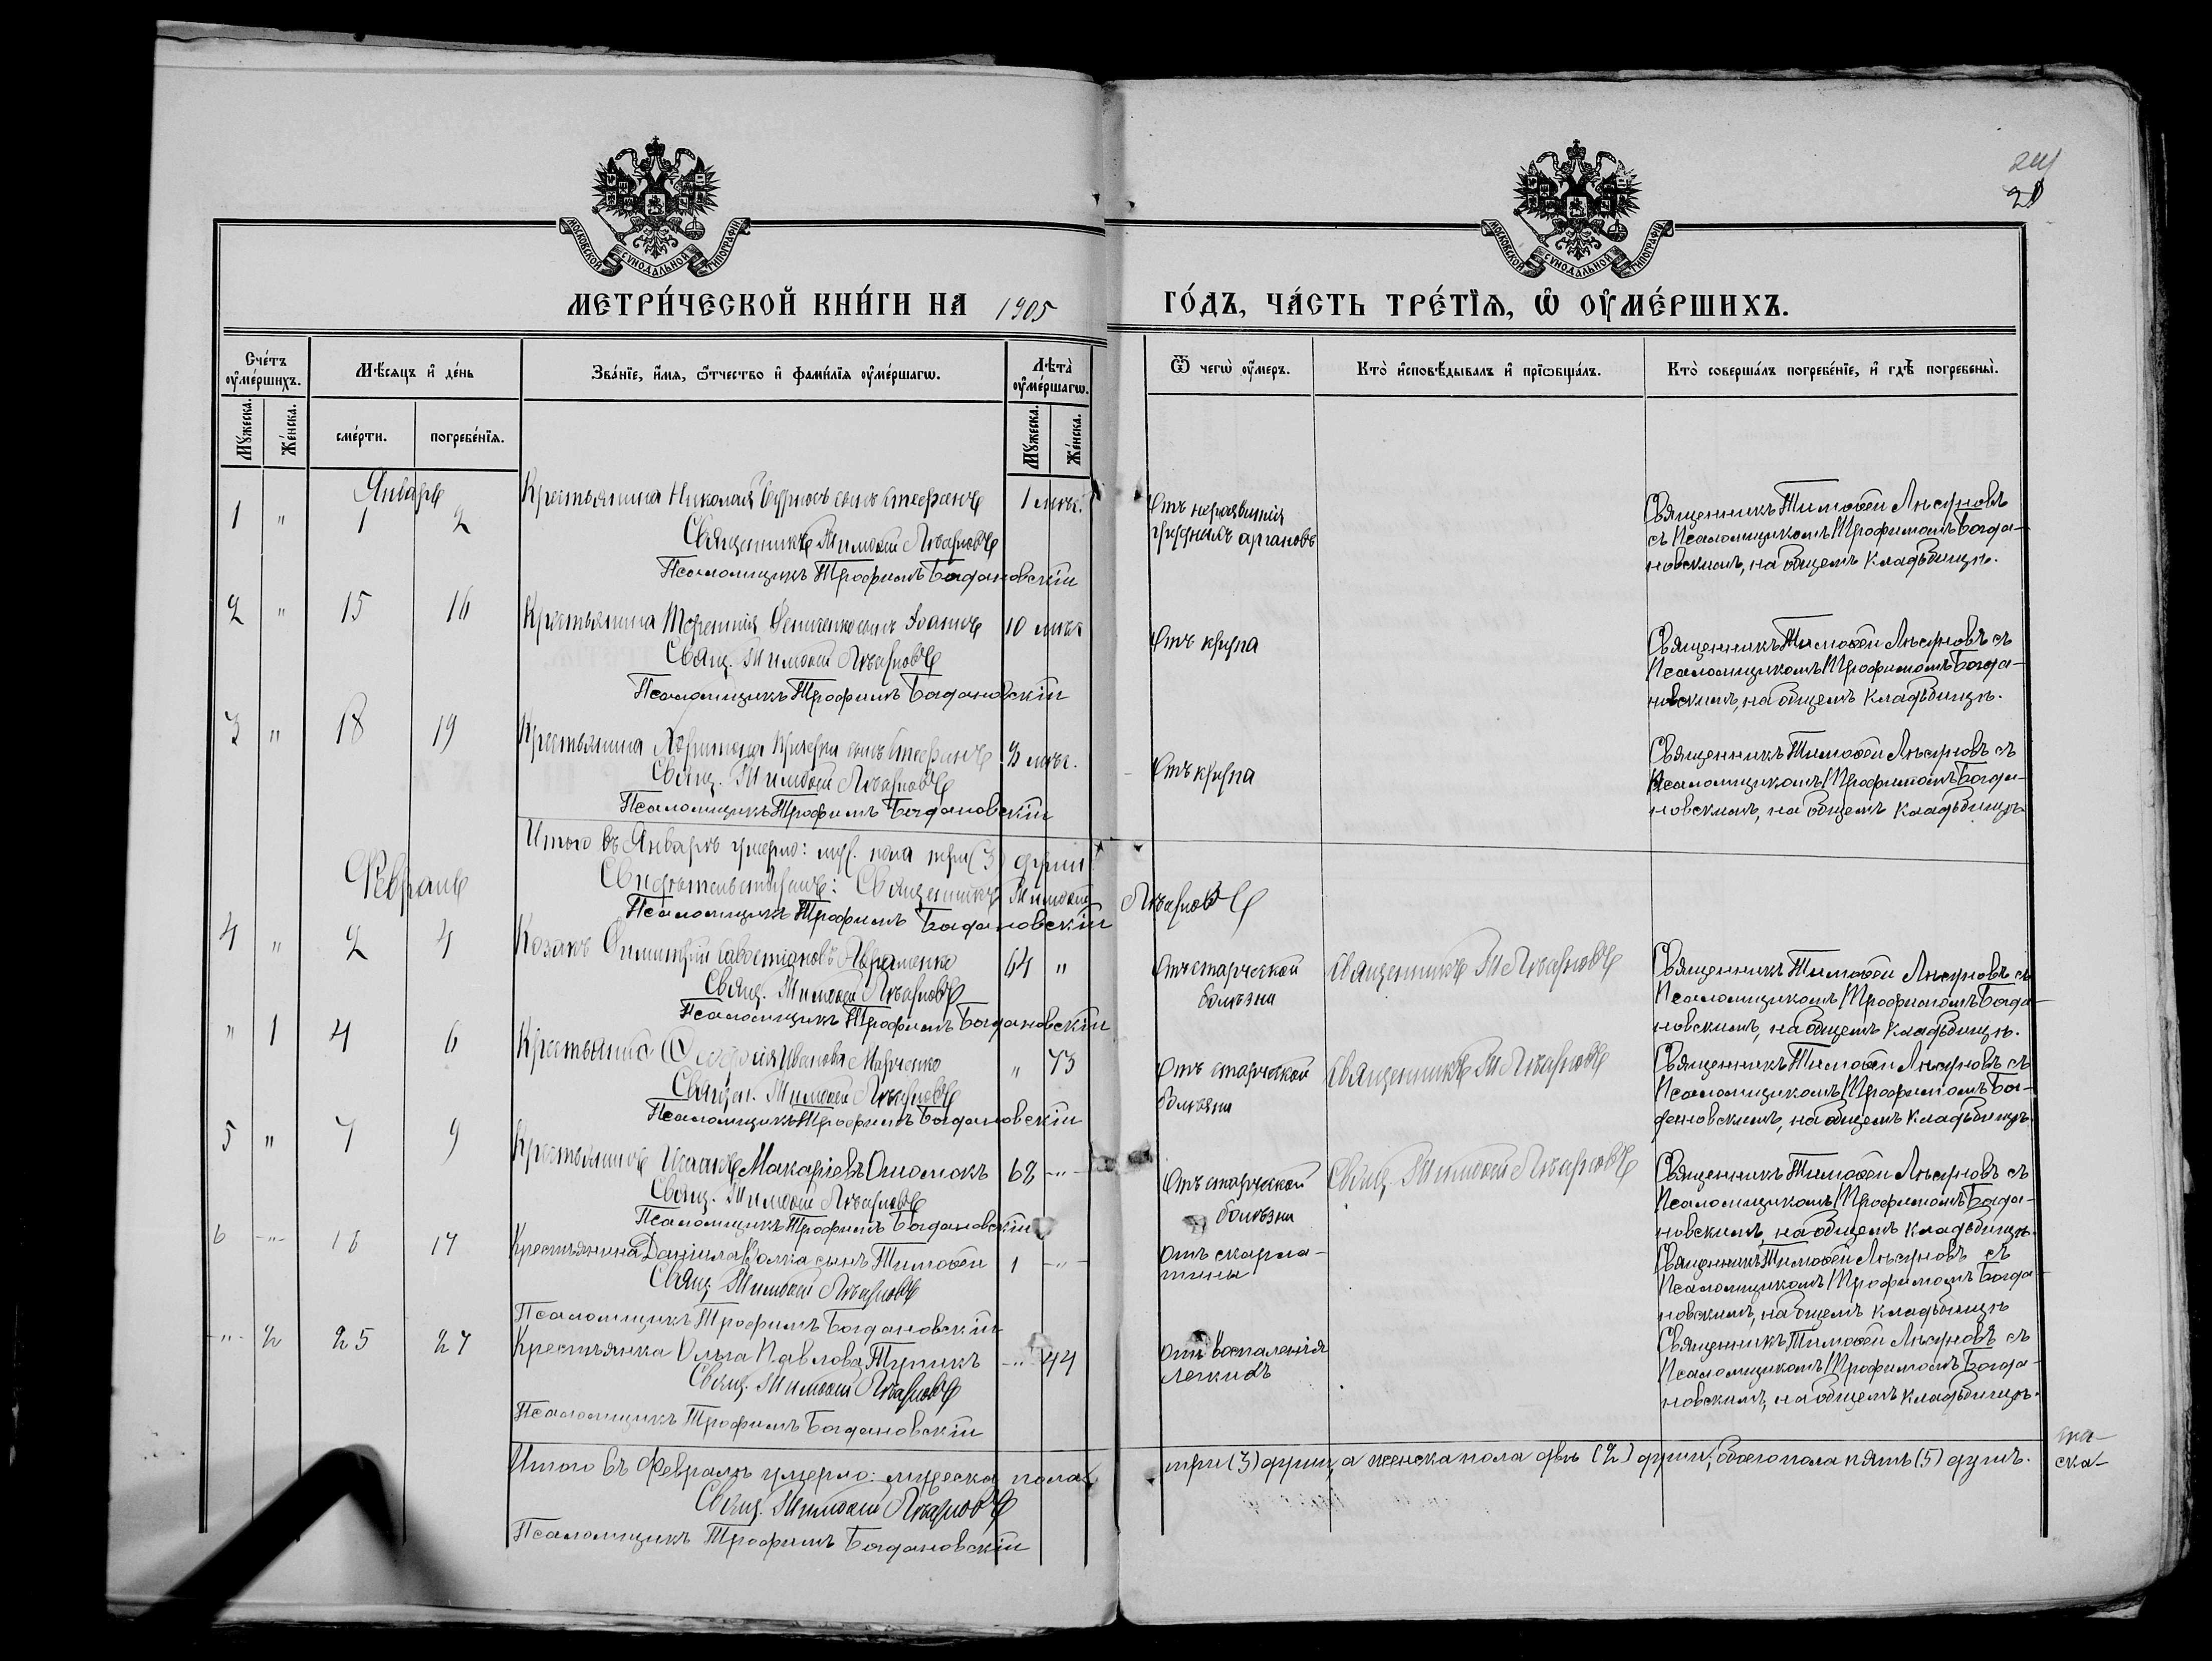 МОСКОВСКОЙ СѴНОДАЛЬНОЙ ТИПОГРАФІИ
МОСКОВСКОЙ СѴНОДАЛЬНОЙ ТИПОГРАФІИ
МЕТРИ́ЧЕСКОЙ КНИ́ГИ НА 1905 ГО́ДЪ, ЧА́СТЬ ТРЕ́ТІѦ, Ѡ ОУ҆МЕ́РШИХЪ.
Сче́тъ оу҆ме́ршихъ.
Мꙋжеска. Же́нска.
Мѣсяцъ и҆ де́нь
сме́рти. погребе́нїѧ.
Зва́нїе, и҆́мѧ, ѻ҆́тчество и҆ фами́лїѧ оу҆ме́ршагѡ.
Лѣта̀ оу҆ме́ршагѡ.
Мꙋжеска. Же́нска.
Ѿ чегѡ̀ оу҆́меръ.
Кто̀ и҆сповѣ́дывалъ и҆ прїѡбща́лъ.
Кто̀ соверша́лъ погребе́нїе, и҆ гдѣ̀ погребены̀.
Январь
1 " 1 2 Крестьянина Николая сынъ Стефанъ 1 мѣс.
Священникъ Тимоѳей Лѣсуновъ
Псаломщикъ Трофимъ Богдановскій
Отъ неразвитія
грудныхъ органовъ
Священникъ Тимоѳей Лѣсуновъ
съ Псаломщикомъ Трофимомъ Богда-
новскимъ, на общемъ кладбищѣ.
2 " 15 16 Крестьянина Терентія сынъ Іоаннъ 10 мѣс.
Свящ. Тимоѳей Лѣсуновъ
Псаломщикъ Трофимъ Богдановскій
Отъ крупа
Священникъ Тимоѳей Лѣсуновъ съ
Псаломщикомъ Трофимомъ Богда-
новскимъ, на общемъ кладбищѣ.
3 " 18 19 Крестьянина Харитона сынъ Стефанъ 3 мѣс.
Свящ. Тимоѳей Лѣсуновъ
Псаломщикъ Трофимъ Богдановскій
Отъ крупа
Священникъ Тимоѳей Лѣсуновъ съ
Псаломщикомъ Трофимомъ Богда-
новскимъ, на общемъ кладбищѣ.
Итого въ Январѣ умерло: муж. пола три (3) души.
Свидѣтельствуемъ: Священникъ Тимоѳей Лѣсуновъ
Псаломщикъ Трофимъ Богдановскій
Февраль
4 " 2 4 Козакъ Димитрій Савостіановъ 64 "
Свящ. Тимоѳей Лѣсуновъ
Псаломщикъ Трофимъ Богдановскій
Отъ старческой
болѣзни
Священникъ Т Лѣсуновъ
Священникъ Тимоѳей Лѣсуновъ съ
Псаломщикомъ Трофимомъ Богда-
новскимъ, на общемъ кладбищѣ.
" 1 4 6 Крестьянка Иванова Марченко " 73
Священ. Тимоѳей Лѣсуновъ
Псаломщикъ Трофимъ Богдановскій
Отъ старческой
болѣзни
Священникъ Т Лѣсуновъ
Священникъ Тимоѳей Лѣсуновъ съ
Псаломщикомъ Трофимомъ Бог-
дановскимъ, на общемъ кладбищѣ.
5 " 7 9 Крестьянинъ Исаакъ Макаріевъ 68 -"-
Свящ. Тимоѳей Лѣсуновъ
Псаломщикъ Трофимъ Богдановскій
Отъ старческой
болѣзни
Свящ. Тимоѳей Лѣсуновъ
Священникъ Тимоѳей Лѣсуновъ съ
Псаломщикомъ Трофимомъ Богда-
новскимъ, на общемъ кладбищѣ.
6 -"- 16 17 Крестьянина Даніила Волка сынъ Тимоѳей 1 -"-
Свящ. Тимоѳей Лѣсуновъ
Псаломщикъ Трофимъ Богдановскій
Отъ скарла-
тины
Священникъ Тимоѳей Лѣсуновъ съ
Псаломщикомъ Трофимомъ Богда-
новскимъ, на общемъ кладбищѣ
-"- 2 25 27 Крестьянка Ольга Павлова Тупикъ -"- 44
Свящ. Тимоѳей Лѣсуновъ
Псаломщикъ Трофимъ Богдановскій
Отъ воспаленія
легкихъ
Священникъ Тимоѳей Лѣсуновъ съ
Псаломщикомъ Трофимомъ Богда-
новскимъ, на общемъ кладбищѣ.
Итого въ Февралѣ умерло: мужеска пола три (3) души, а женска пола двѣ (2) души, обоего пола пять (5) душъ.
Свящ. Тимоѳей Лѣсуновъ
Псаломщикъ Трофимъ Богдановскій